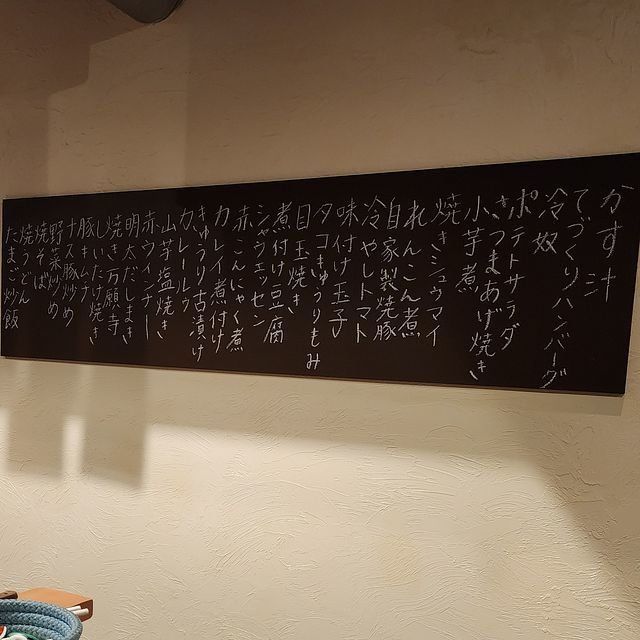 かす汁
てづくりハンバーグ
冷奴
ポテトサラダ
さつまあげ焼き
小芋煮
焼きシュウマイ
れんこん煮
自家製焼豚
冷やしトマト
味付け玉子
タコきゅうりもみ
目玉焼き
煮付け豆腐
シャウエッセン
赤こんにゃく煮
カレイ煮付け
きゅうり古漬け
カレールウ
山芋塩焼き
赤ウィンナー
明太だしまき
焼き万願寺
しいたけ焼き
豚キムチ
ナス豚炒め
野菜炒め
焼そば
焼うどん
たまご炒飯